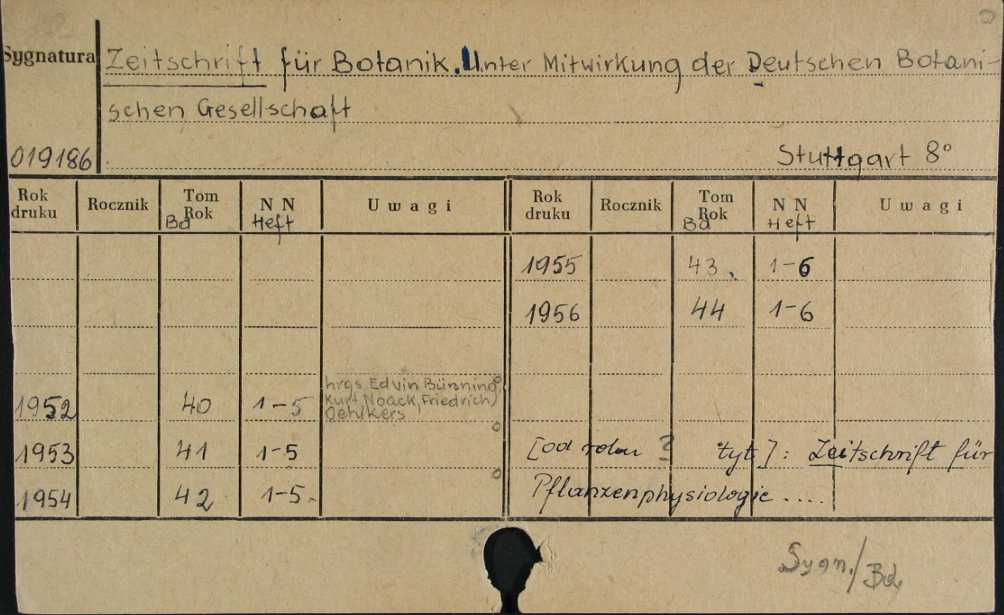 Sygnatura Zeitschrift für Botanik. Unter Mitwirkung der Deutschen Botani-
schen Gesellschaft
019186 Stuttgart 8°
Rok druku Rocznik Tom Rok Bd N N Heft Uwagi Rok druku Rocznik Tom Rok Bd N N Heft Uwagi
1955 43. 1-6
1956 44 1-6
hrgs. Edvin Bünning,
Kurt Noack, Friedrich
Oehlkers
1952 40 1-5
1953 41 1-5 [od roku ? tyt.]: Zeitschrift für
1954 42 1-5. Pflanzenphysiologie ....
Sygn./Bd.